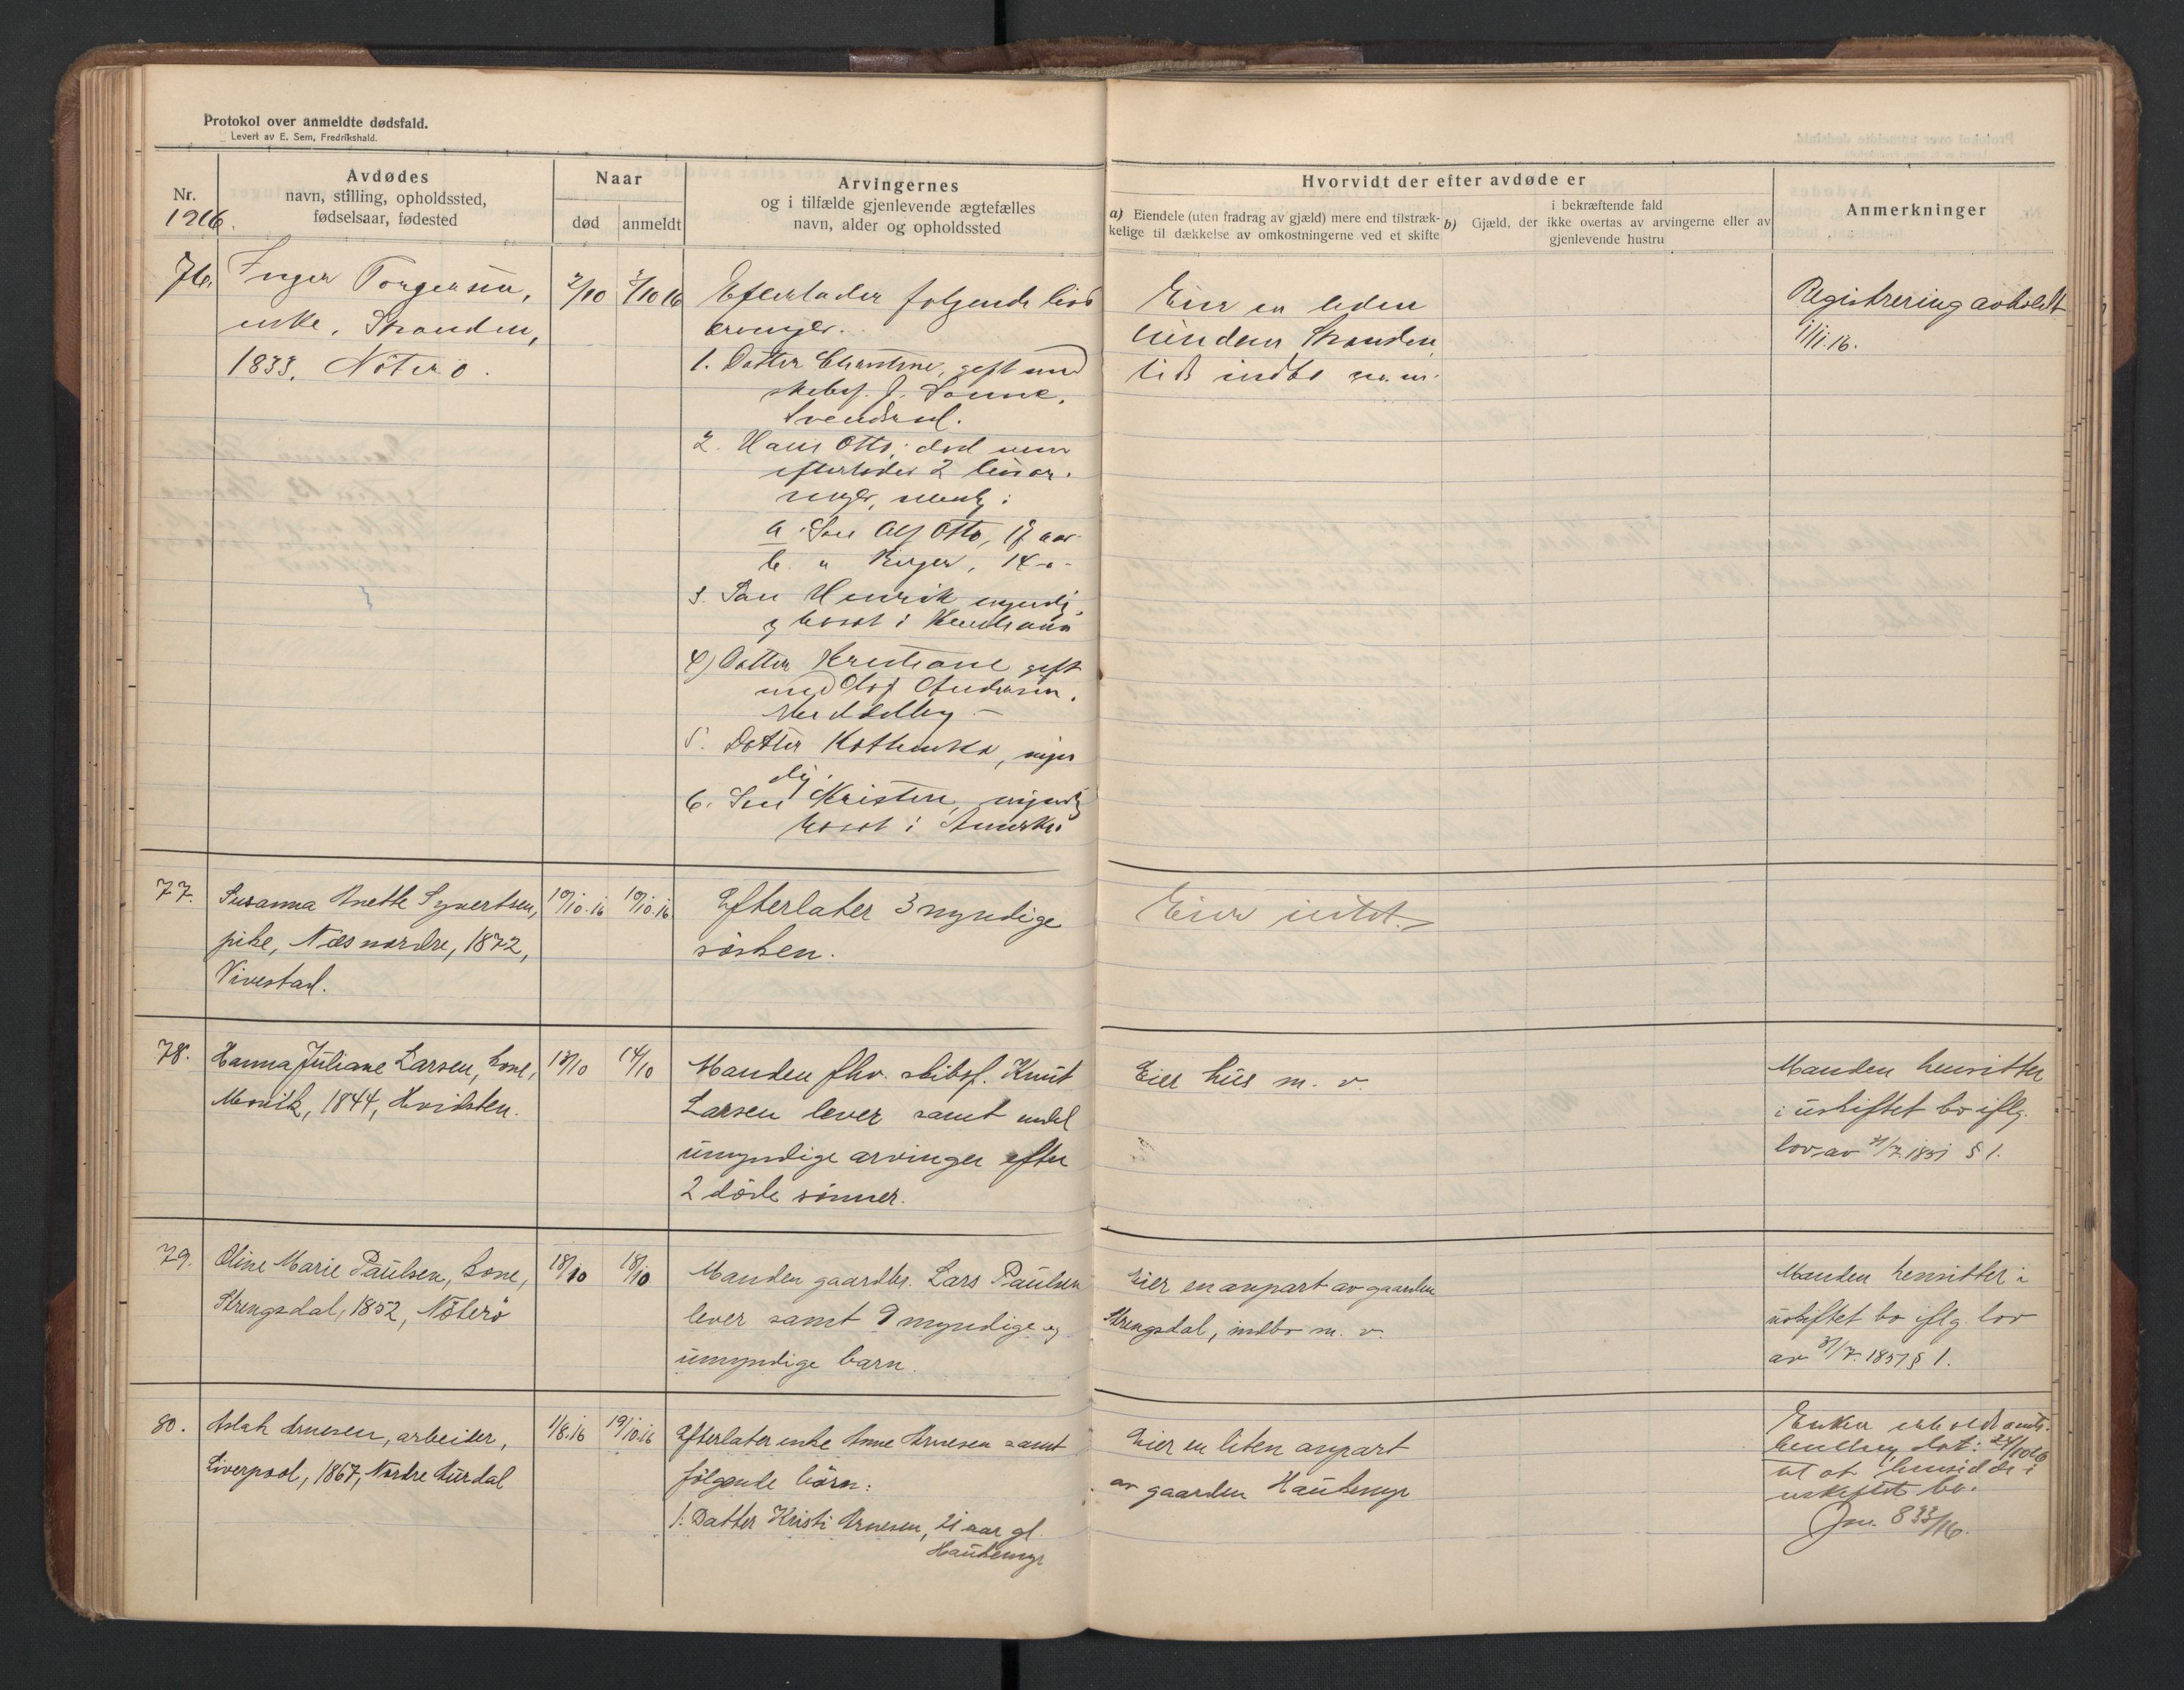 Protokol over anmeldte dødsfald.
Levert av E. Sem, Fredrikshald.
Nr.
1916.
Avdødes
navn, stilling, opholdssted,
fødselsaar, fødested
Naar
død
anmeldt
Arvingernes
og i tilfælde gjenlevende ægtefælles
navn, alder og opholdssted
Hvorvidt der efter avdøde er
a) Eiendele (uten fradrag av gjæld) mere end tilstræk-
kelige til dækkelse av omkostningerne ved et skifte
i bekræftende fald
b) Gjæld, der ikke overtas av arvingerne eller av
gjenlevende hustru
Anmerkninger
76. Inger Torgersen,
enke, Stranden,
1833, Nøterø.
2/10
3/10 16
Efterlader følgende livs
arvinger.
1. Datter gift med
skibsf. J.
2. Hans Otto, død men
efterlader 2 livsar-
vinger, nemlig:
a. Søn Alf Otto, 17 aar
b. " Birger, 14 -"-
3. Søn Henrik myndig,
og bosat i
4) Datter Kristiane gift
med Olaf Andersen,
5. Datter Kathinka, myn
dig.
6. Søn Kristen, myndig
bosat i Amerika
Eier en liden
eiendom Stranden,
lidt indbo m.m.
Registrering avholdt
1/11.16.
77. Susanna Anette Syvertsen,
pike, Næs nordre, 1872,
Vivestad.
10/10.16
10/10.16
Efterlater 3 myndige
søsken.
Eier intet.
78. Hanna Juliane Larsen, kone,
1844, Hvidsten.
13/10
14/10
Manden fhv. skibsf. Knut
Larsen lever samt endel
umyndige arvinger efter
2 døde sønner.
Eier hus m. v.
Manden hensitter
i uskiftet bo iflg.
lov av 31/7.1851 § 1.
79. Oline Marie Paulsen, kone,
Strengsdal, 1852, Nøterø
18/10
18/10
Manden gaardbr. Lars Paulsen
lever samt 9 myndige og
umyndige barn.
Eier en anpart av gaarden
Strengsdal, indbo m. v.
Manden hensitter i
uskiftet bo iflg. lov
av 31/7. 1851 § 1.
80. Aslak Arnesen, arbeider,
Liverpool, 1867, Nordre Hurdal
1/8.16
19/10.16
Efterlater enke Anne Arnesen samt
følgende børn:
1. Datter Kristi Arnesen, 21 aar gl.
Haukemyr
Eier en liten anpart
av gaarden Haukemyr
Enken
dat: 24/10 16
til at hensidde i
uskiftet bo.
Jnr. 833/16.